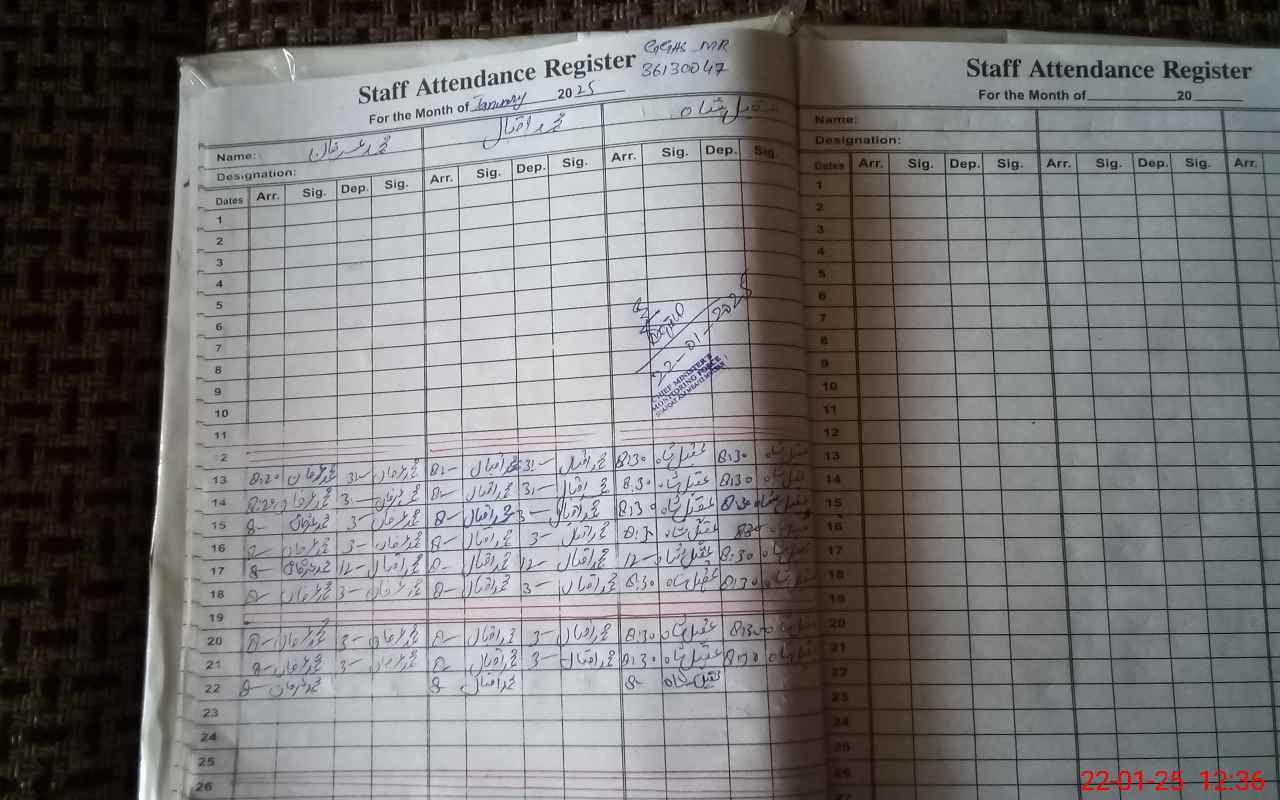 GGHS MR
36130047
Staff Attendance Register
For the Month of January 2025
Name: محمد عرفان محمد اقبال عقیل شاہ
Designation:
Dates Arr. Sig. Dep. Sig. Arr. Sig. Dep. Sig. Arr. Sig. Dep. Sig.
1
2
3
4
5
6
7
8
9
10
11
2
22-01-2025
CHIEF MINISTER'S
MONITORING FORCE
13 8:20 محمد عرفان 3:- محمد عرفان 8:- محمد اقبال 3:- محمد اقبال 8:30 عقیل شاہ 8:30
14 محمد عرفان 3:- محمد عرفان 8- محمد اقبال 3:- محمد اقبال 8:30 عقیل شاہ 8:30
15 8- محمد عرفان 3- محمد عرفان 8- محمد اقبال 3- محمد اقبال 8:30 عقیل شاہ 8:30 عقیل شاہ
16 8- محمد عرفان 3- محمد عرفان 8- محمد اقبال 3- محمد اقبال عقیل شاہ
17 8- محمد عرفان 12- 8- محمد اقبال 12- محمد اقبال 12- عقیل شاہ 8:30 عقیل شاہ
18 8- محمد عرفان 3- محمد عرفان 8- محمد اقبال 3- محمد اقبال 8:30 عقیل شاہ 8:30
19
20 8- محمد عرفان 3- محمد عرفان 8- محمد اقبال 3- محمد اقبال 8:30 عقیل شاہ 8:30
21 8- محمد عرفان 3- محمد عرفان 8- محمد اقبال 3- محمد اقبال 8:30 عقیل شاہ
22 8- محمد عرفان 8- محمد اقبال 8- عقیل شاہ
23
24
25
26
Staff Attendance Register
For the Month of 20
Name:
Designation:
Dates Arr. Sig. Dep. Sig. Arr. Sig. Dep. Sig. Arr.
1
2
3
4
5
6
7
8
9
10
11
12
13
14
15
16
17
18
19
20
21
22
23
24
25
26
27
22-01-25 12:36